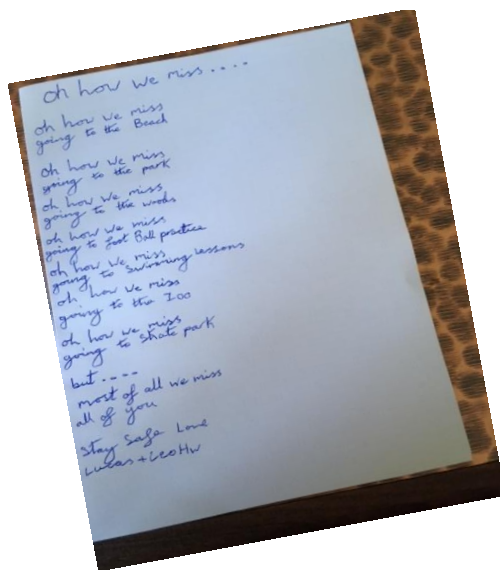 oh how we miss....
oh how we miss
going to the Beach
oh how we miss
going to the park
oh how we miss
going to the woods
oh how we miss
going to foot Ball practice
oh how we miss
going to Swimming lessons
oh how we miss
going to the Zoo
oh how we miss
going to skate park
but....
most of all we miss
all of you
Stay Safe Love
Lucas + Leo HW